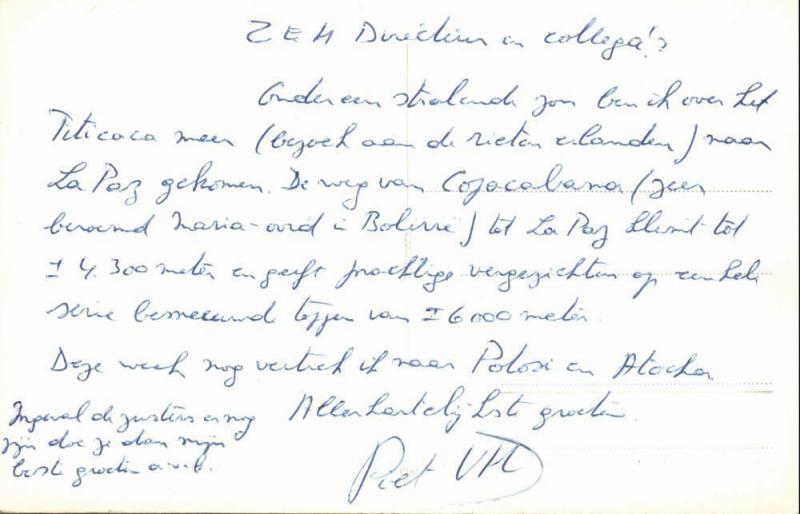 ZEH Directeur en collega's
Onder een stralende zon ben ik over het
Titicaca meer (bezoek aan de rieten eilanden) naar
La Paz gekomen. De weg van Copacabana (zeer
beroemd Maria-oord in Bolivië) tot La Paz klimt tot
± 4.300 meter en geeft prachtige vergezichten op een hele
serie besneeuwde toppen van ± 6000 meter.
Deze week nog vertrek ik naar Potosi en Atocha.
Allerhartelijkste groeten.
Piet VH
Ingeval de zusters er nog
zijn doe ze dan mijn
beste groeten a.u.b.